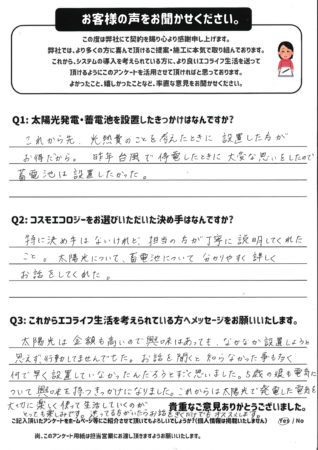 お客様の声をお聞かせください。
この度は弊社にて契約を賜り心より感謝申し上げます。
弊社では、より多くの方に喜んで頂けるご提案・施工に本気で取り組んでおります。
これから、システムの導入を考えられている方に、より良いエコライフ生活を送って
頂けるようにこのアンケートを活用させて頂ければと思っております。
よかったこと、嬉しかったことなど、率直な意見をお聞かせください。
Q1: 太陽光発電・蓄電池を設置したきっかけはなんですか?
これから先、光熱費のことを考えたときに 設置した方が
お得だから。昨年台風で停電したときに大変な思いをしたので
蓄電池は設置したかった。
Q2: コスモエコロジーをお選びいただいた決め手はなんですか?
特に決め手はないけれど、担当の方が丁寧に説明してくれた
こと。太陽光について、蓄電池について分かりやすく詳しく
お話をしてくれた。
Q3: これからエコライフ生活を考えられている方へメッセージをお願いいたします。
太陽光は金額も高いので興味はあっても、なかなか設置しようと
思えず、行動してませんでした。お話を聞くと知らなかった事も多く
何で早く設置していなかったんだろうとすごく思いました。5歳の娘も電気に
ついて興味を持つきっかけになりました。これからは太陽光で発電した電気を
大切に楽しく使って生活していくのが
とっても楽しみです。迷ってる方がいたらお話をきくだけでもオススメします。
貴重なご意見ありがとうございました。
ご記入頂いたアンケートをホームページ等にご紹介させて頂いてもよろしいでしょうか?(個人情報は掲載いたしません) Yes / No
尚、このアンケート用紙は担当営業にお渡し頂きますようお願いいたします。